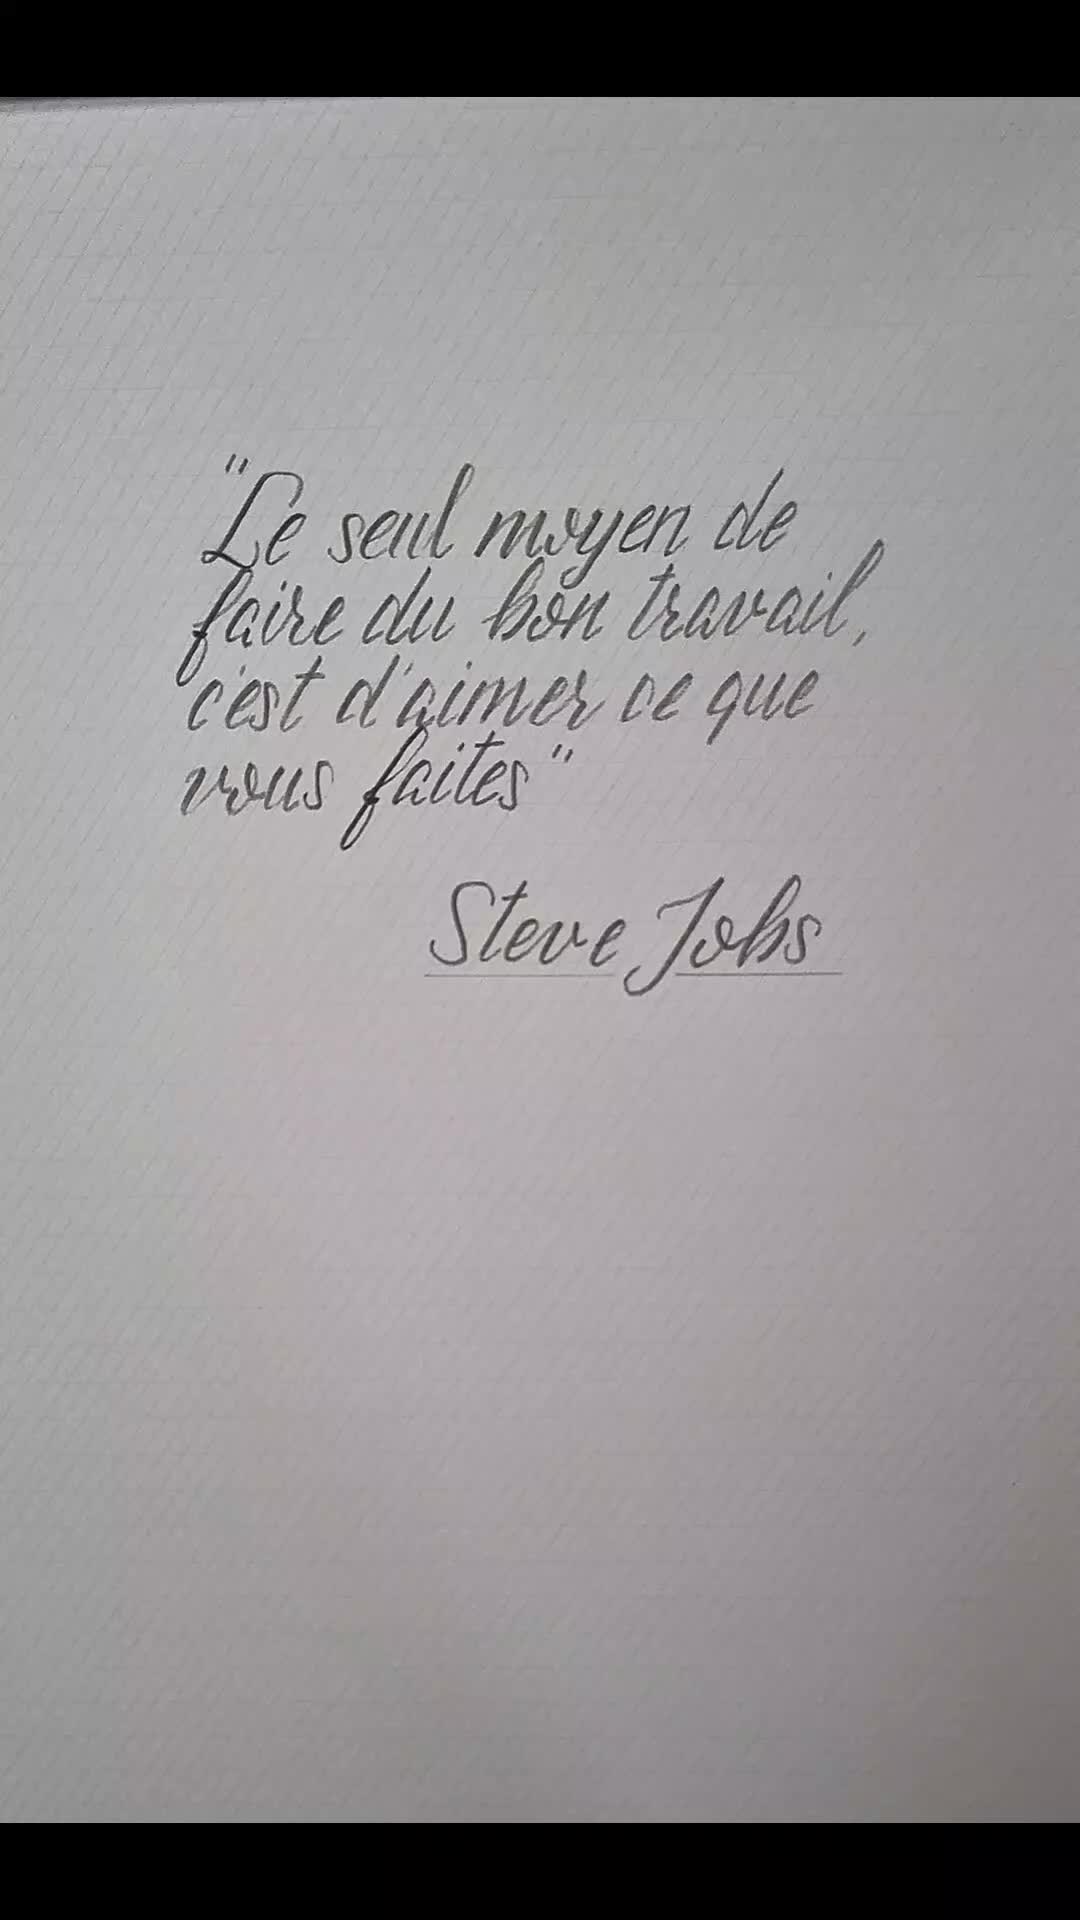 "Le seul moyen de
faire du bon travail,
c'est d'aimer ce que
vous faites"
Steve Jobs